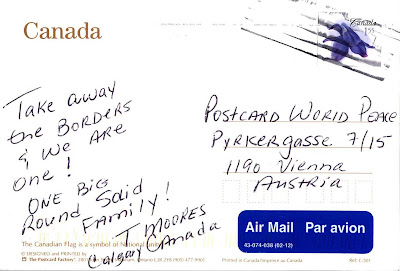 Canada
Canada
1.55
Take away
the BORDERS
& WE ARE
One!
ONE BIG
Round Solid
Family!
T MOORES
Calgary Canada
POSTCARD WORLD PEACE
PYRKERGASSE 7/15
1190 Vienna
AUSTRIA
Air Mail Par avion
43-074-038 (02-12)
The Canadian Flag is a symbol of National
DESIGNED AND PRINTED BY
The Postcard Factory
Printed in Canada/Imprimé au Canada
Ref: L-501